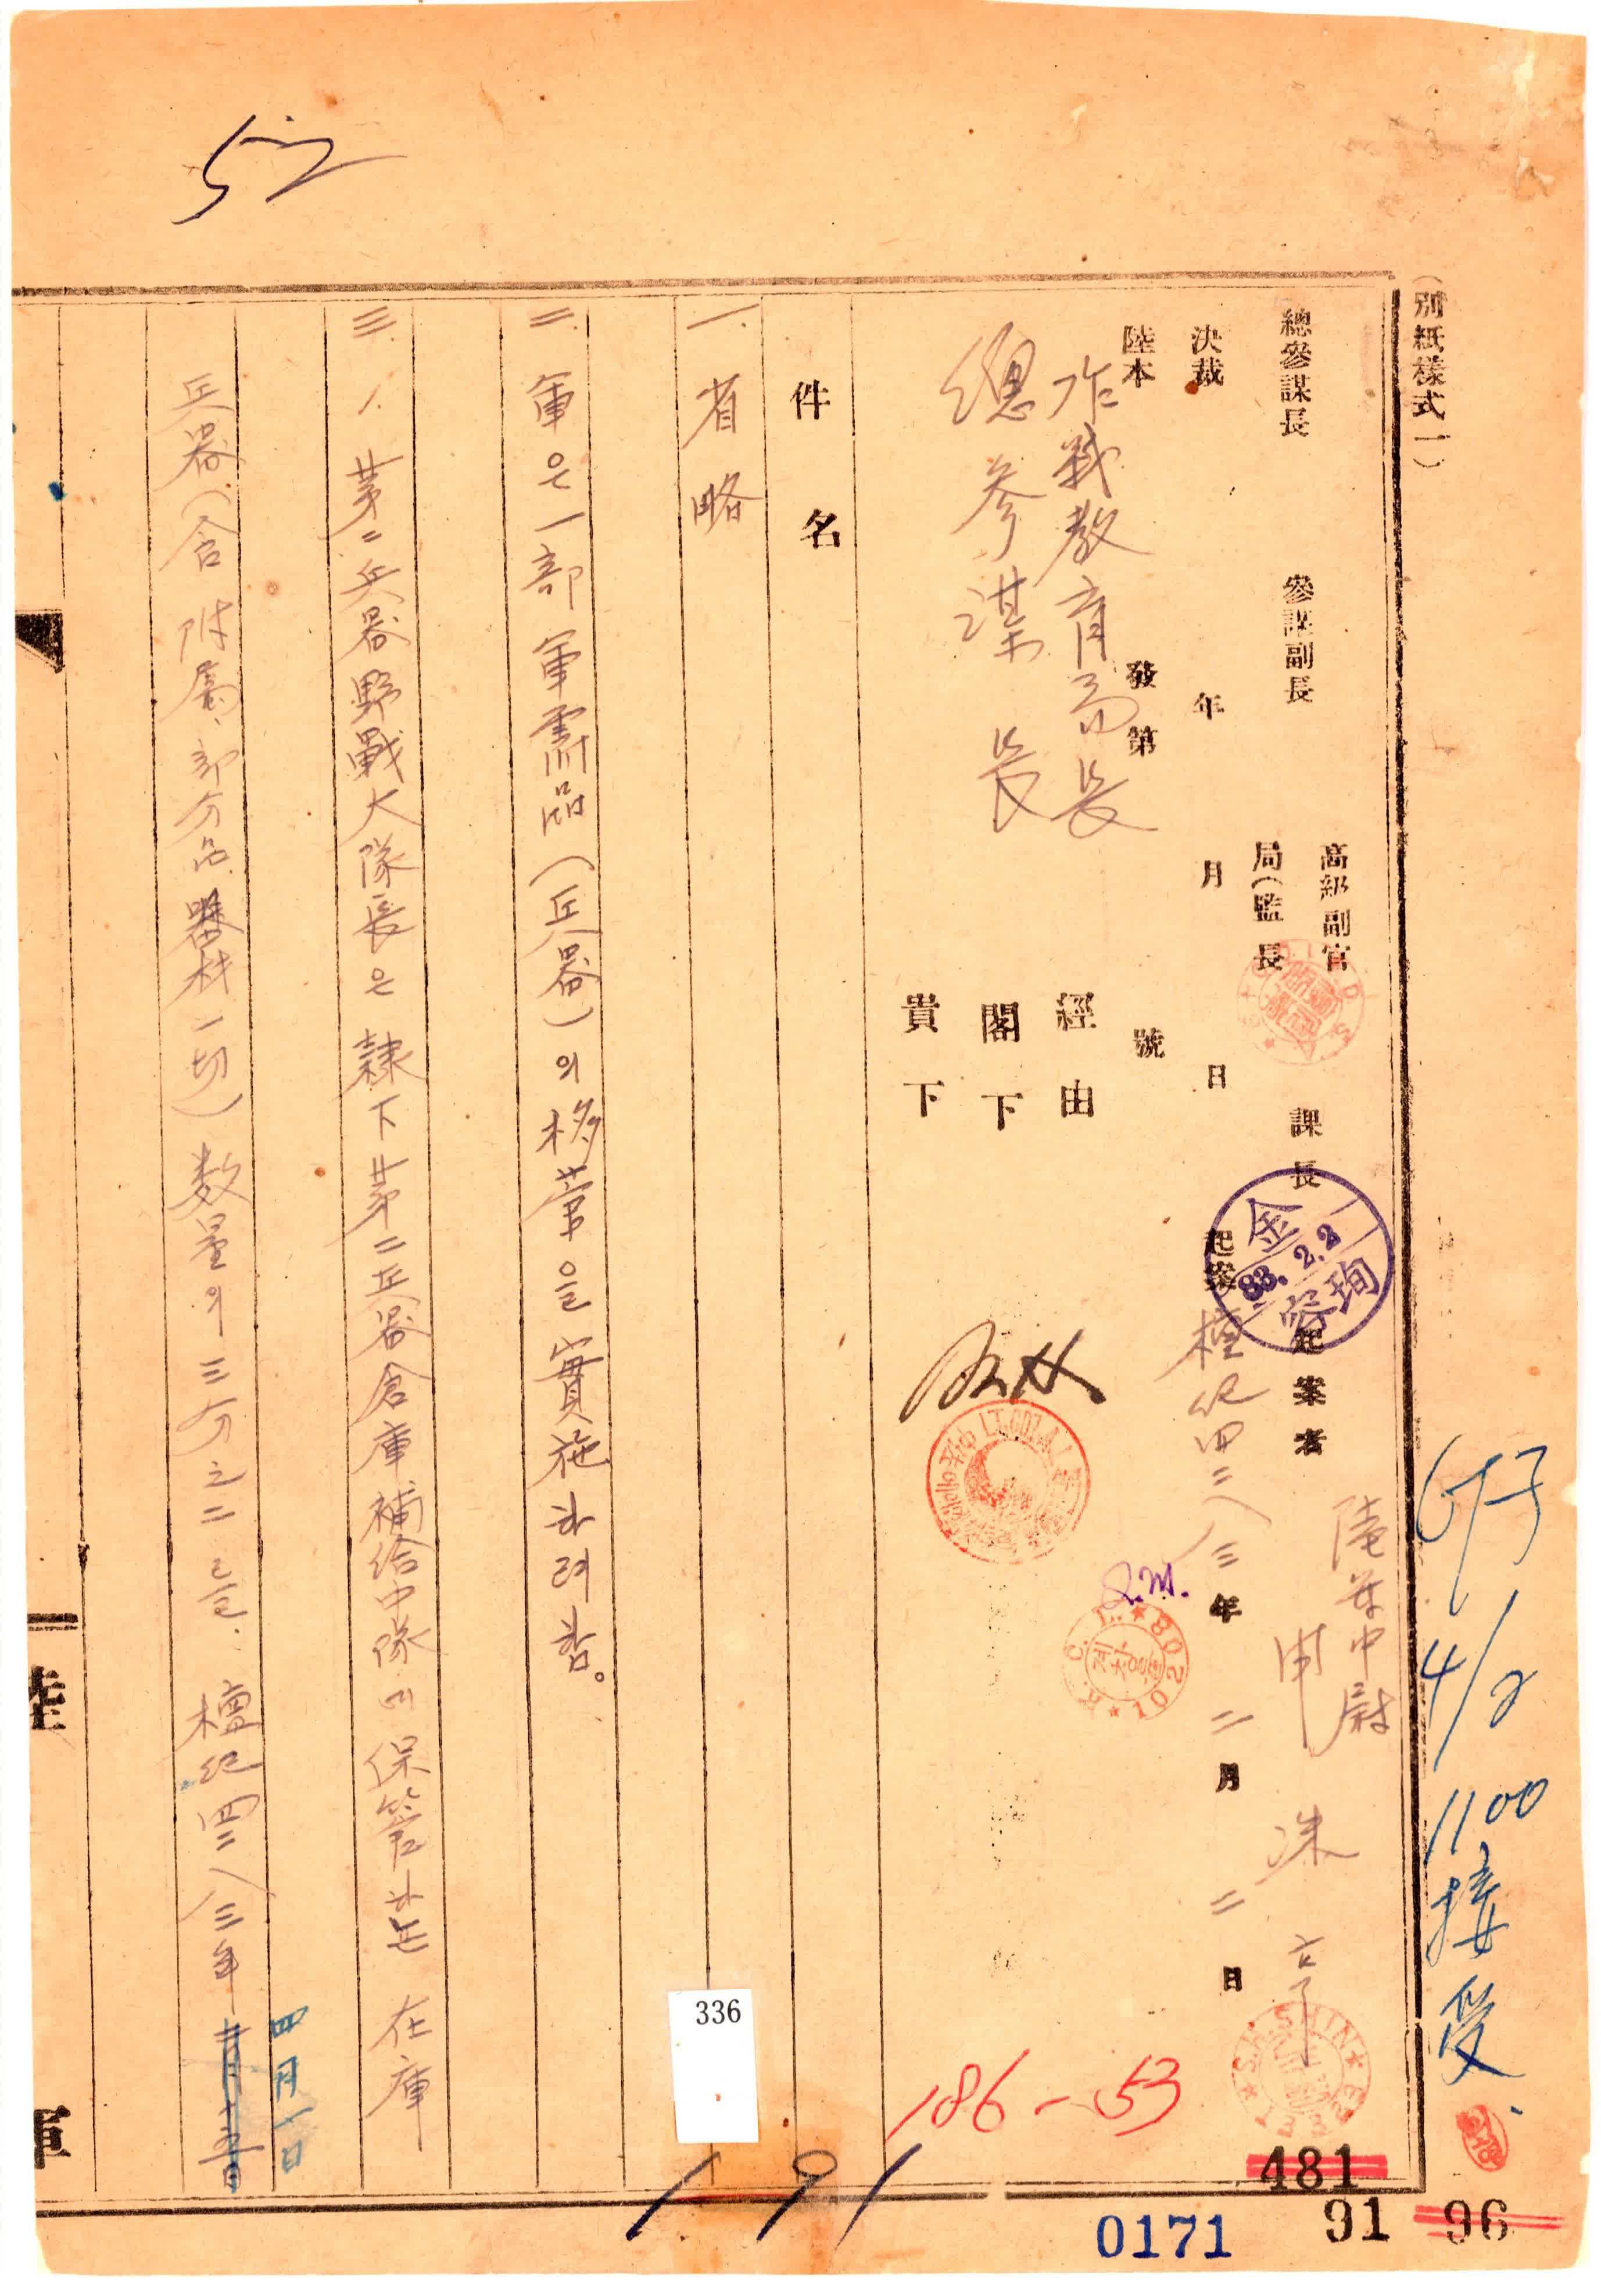 52
(別紙樣式一)
總參謀長 參謀副長 高級副官
局(監)長 課長 起案者
陸軍中尉 申洙亨
決裁 年 月 日 起案 檀紀四二八三年 二月 二日
陸本 發第 號
作戰敎育局長 經由
總參謀長 閣下
貴下
件名
一. 省略
二. 軍은 一部 軍需品(兵器)의 移管을 實施하려함。
三. 1. 第二兵器野戰大隊長은 隷下 第二兵器倉庫補給中隊에 保管하는 在庫
兵器(含 附屬、部分品、器材一切) 数量의 三分之二를、檀紀四二八三年
四月一日
金 83.2.2 容珣
S.M.
S.H.SHIN
10208
G-3
4/2
1100
接受.
336
186-53
191
481
0171
91
96
陸
軍